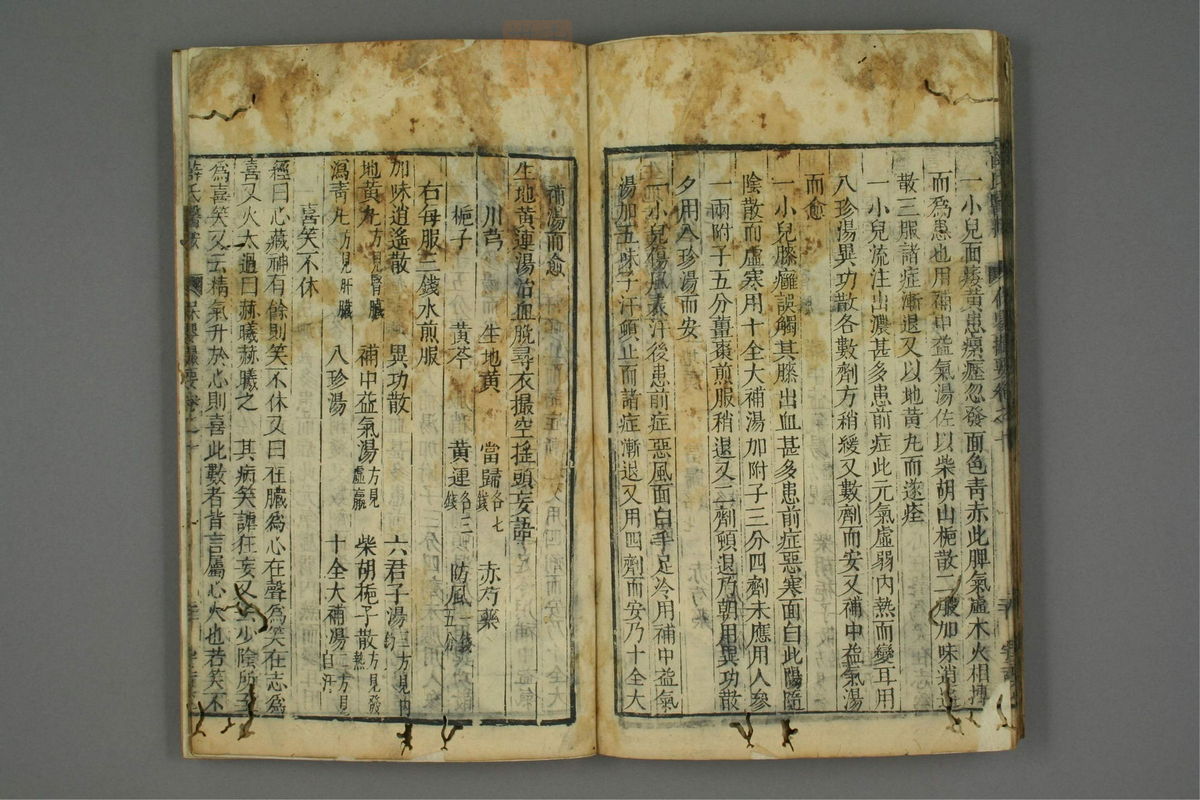 一小兒面痿黃患瘰癧忽發面色青赤此脾氣虛木火相搏
而爲患也用補中益氣湯佐以柴胡山梔散二服加味逍遙
散三服諸症漸退又以地黃丸而遂痊
一小兒流注出濃甚多患前症此元氣虛弱內熱而變耳用
八珍湯異功散各數劑方稍緩又數劑而安又補中益氣湯
而愈
一小兒膝癰誤觸其膝出血甚多患前症惡寒面白此陽隨
陰散而虛寒用十全大補湯加附子三分四劑未應用人參
一兩附子五分薑棗煎服稍退又二劑頓退乃朝用異功散
夕用八珍湯而安
一小兒傷風表汗後患前症惡風面白手足冷用補中益氣
湯加五味子汗頓止而諸症漸退又用四劑而安乃十全大
補湯而愈
生地黃連湯治血脫尋衣撮空搖頭妄語
川芎 生地黃 當歸各七錢 赤芍藥
梔子 黃芩 黃連各三錢 防風一錢五分
右每服三錢水煎服
加味逍遙散 異功散 六君子湯三方見內釣
地黃丸方見腎臟 補中益氣湯方見虛羸 柴胡梔子散方見發熱
瀉青丸方見肝臟 八珍湯 十全大補湯二方見自汗
喜笑不休
經曰心藏神有餘則笑不休又曰在臟爲心在聲爲笑在志爲
喜又火太過曰赫曦赫曦之 其病笑謔狂妄又云少陰所至
爲喜笑又云精氣并於心則喜此數者皆言屬心火也若笑不
薛氏醫案 保嬰撮要卷之十